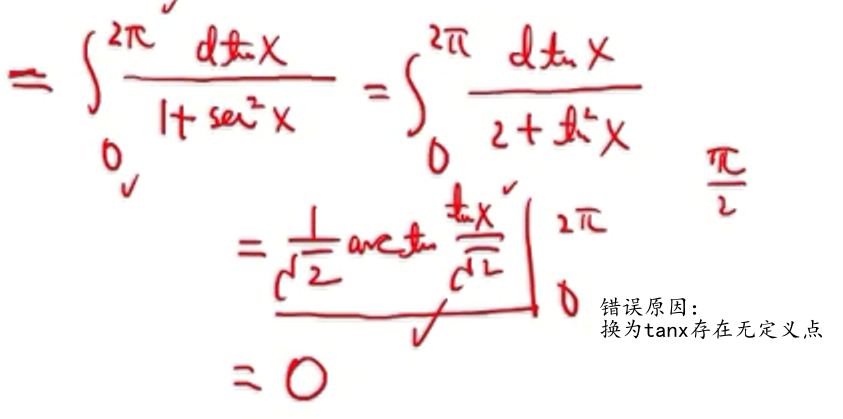 = ∫₀^{2π} dtanx / (1+sec²x) = ∫₀^{2π} dtanx / (2+tan²x)
π/2
= 1/√2 arctan tanx/√2 |₀^{2π}
错误原因:
换为tanx存在无定义点
= 0